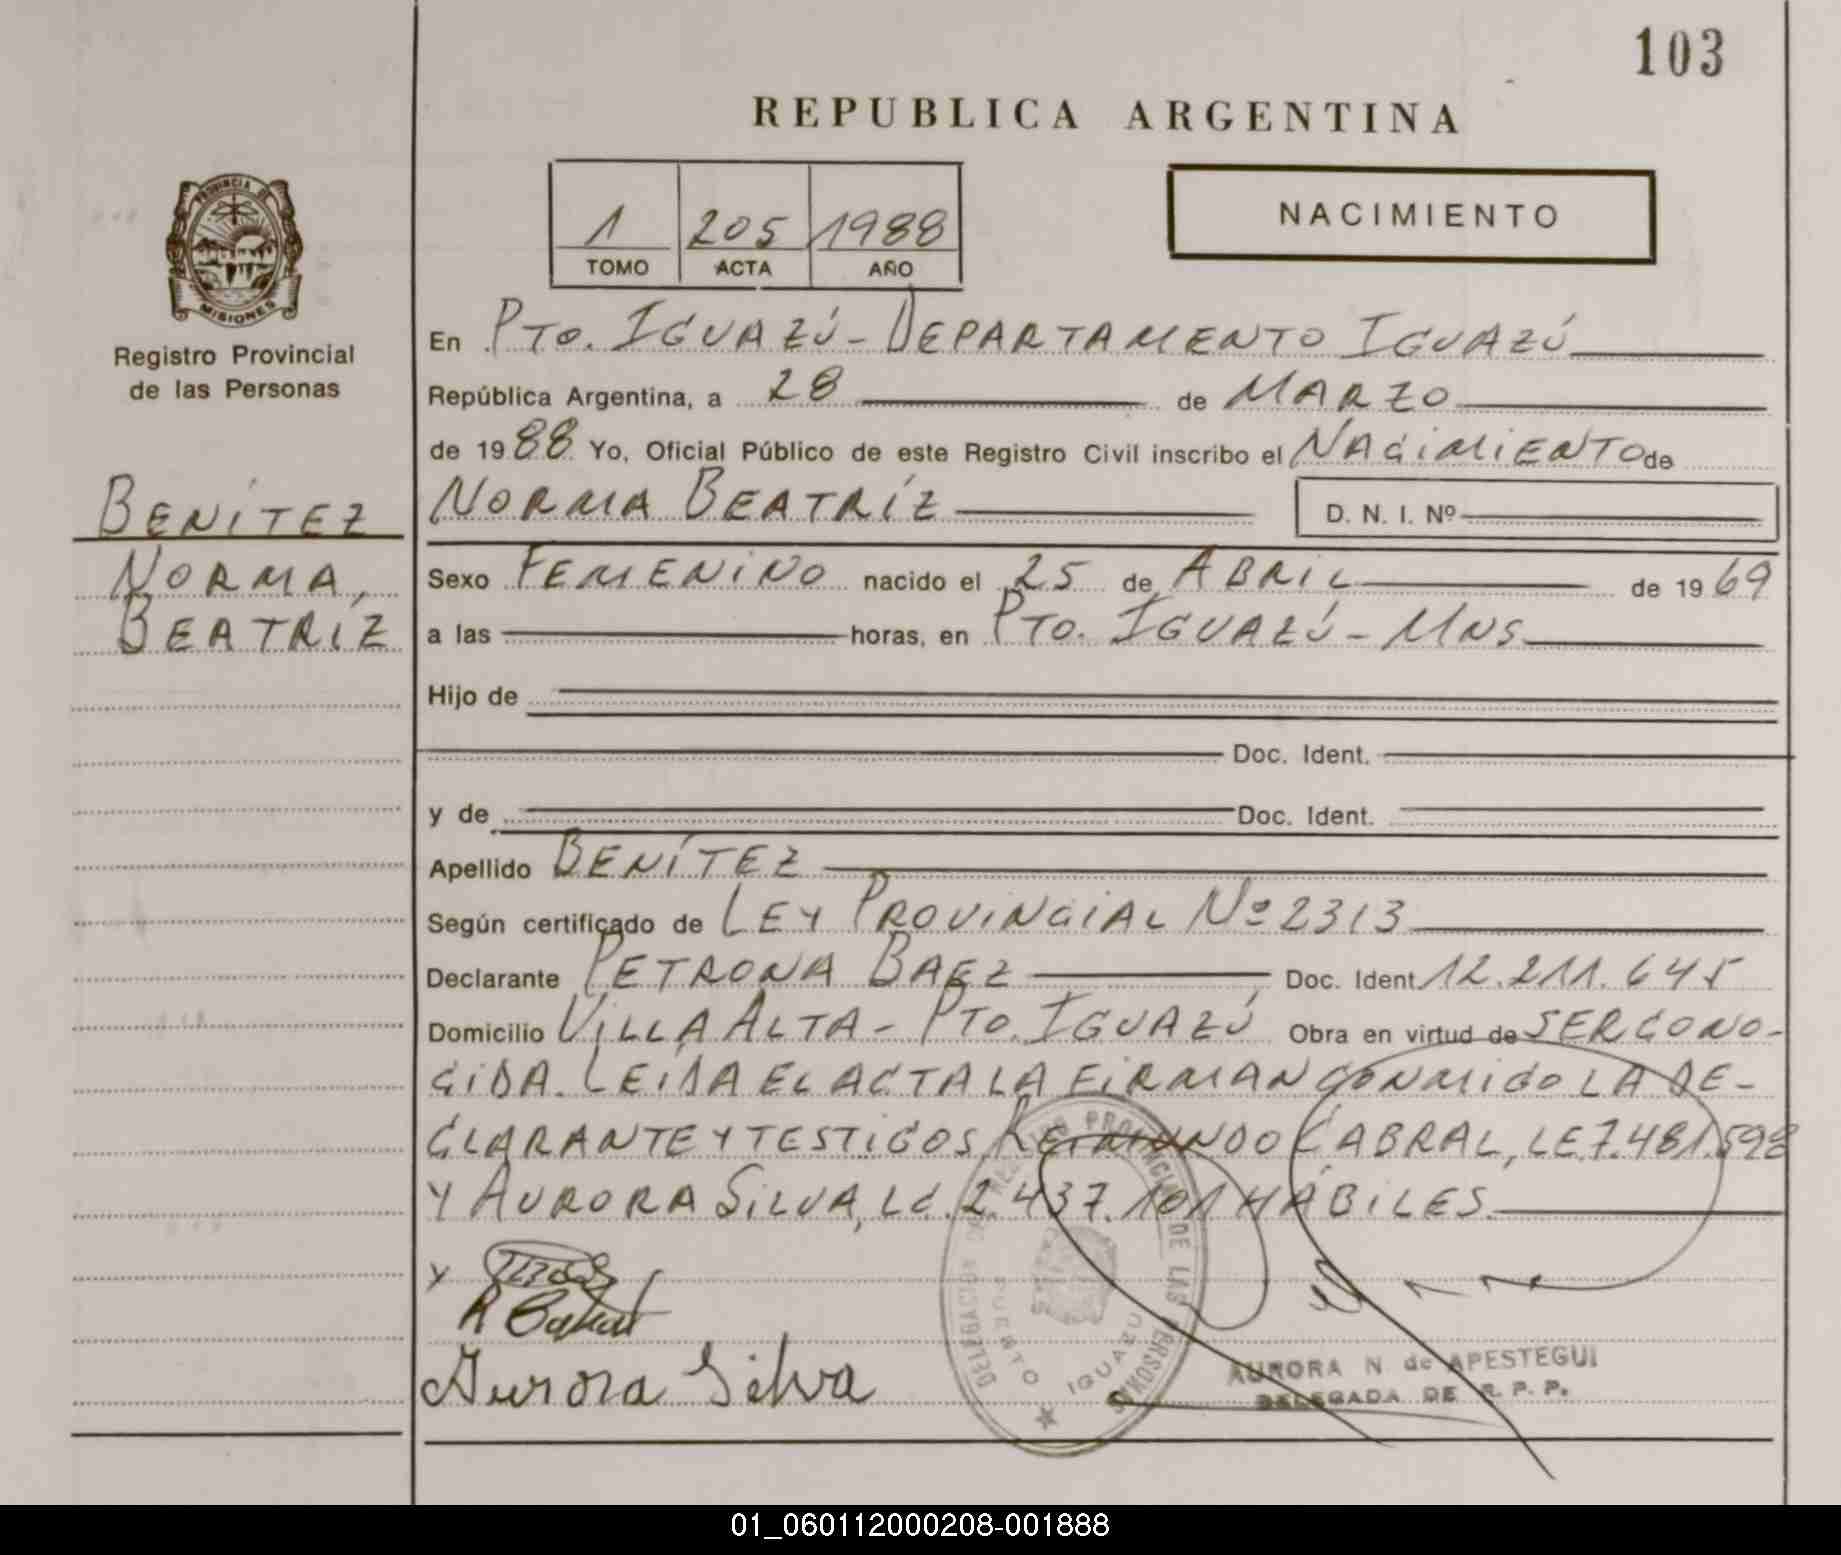 103
REPUBLICA ARGENTINA
1 205 1988
TOMO ACTA AÑO
NACIMIENTO
PROVINCIA DE
MISIONES
Registro Provincial
de las Personas
BENÍTEZ
NORMA,
BEATRÍZ
En PTO. IGUAZÚ - DEPARTAMENTO IGUAZÚ
República Argentina, a 28 de MARZO
de 1988 Yo, Oficial Público de este Registro Civil inscribo el NACIMIENTO de
NORMA BEATRÍZ D. N. I. Nº
Sexo FEMENINO nacido el 25 de ABRIL de 1969
a las horas, en PTO. IGUAZÚ - MNS
Hijo de
Doc. Ident.
y de Doc. Ident.
Apellido BENÍTEZ
Según certificado de LEY PROVINCIAL Nº 2313
Declarante PETRONA BAEZ Doc. Ident 12.211.645
Domicilio VILLA ALTA - PTO. IGUAZÚ Obra en virtud de SER CONO-
CIDA. LEIDA EL ACTA LA FIRMAN CONMIGO LA DE-
CLARANTE Y TESTIGOS, REIMUNDO CABRAL, LE.7.481.598
Y AURORA SILVA, LC.2.437.101 HÁBILES.
Y
Aurora Silva
DELEGACION DEL REGISTRO PROVINCIAL DE LAS PERSONAS
PUERTO IGUAZU
AURORA N de APESTEGUI
DELEGADA DE R. P. P.
01_060112000208-001888